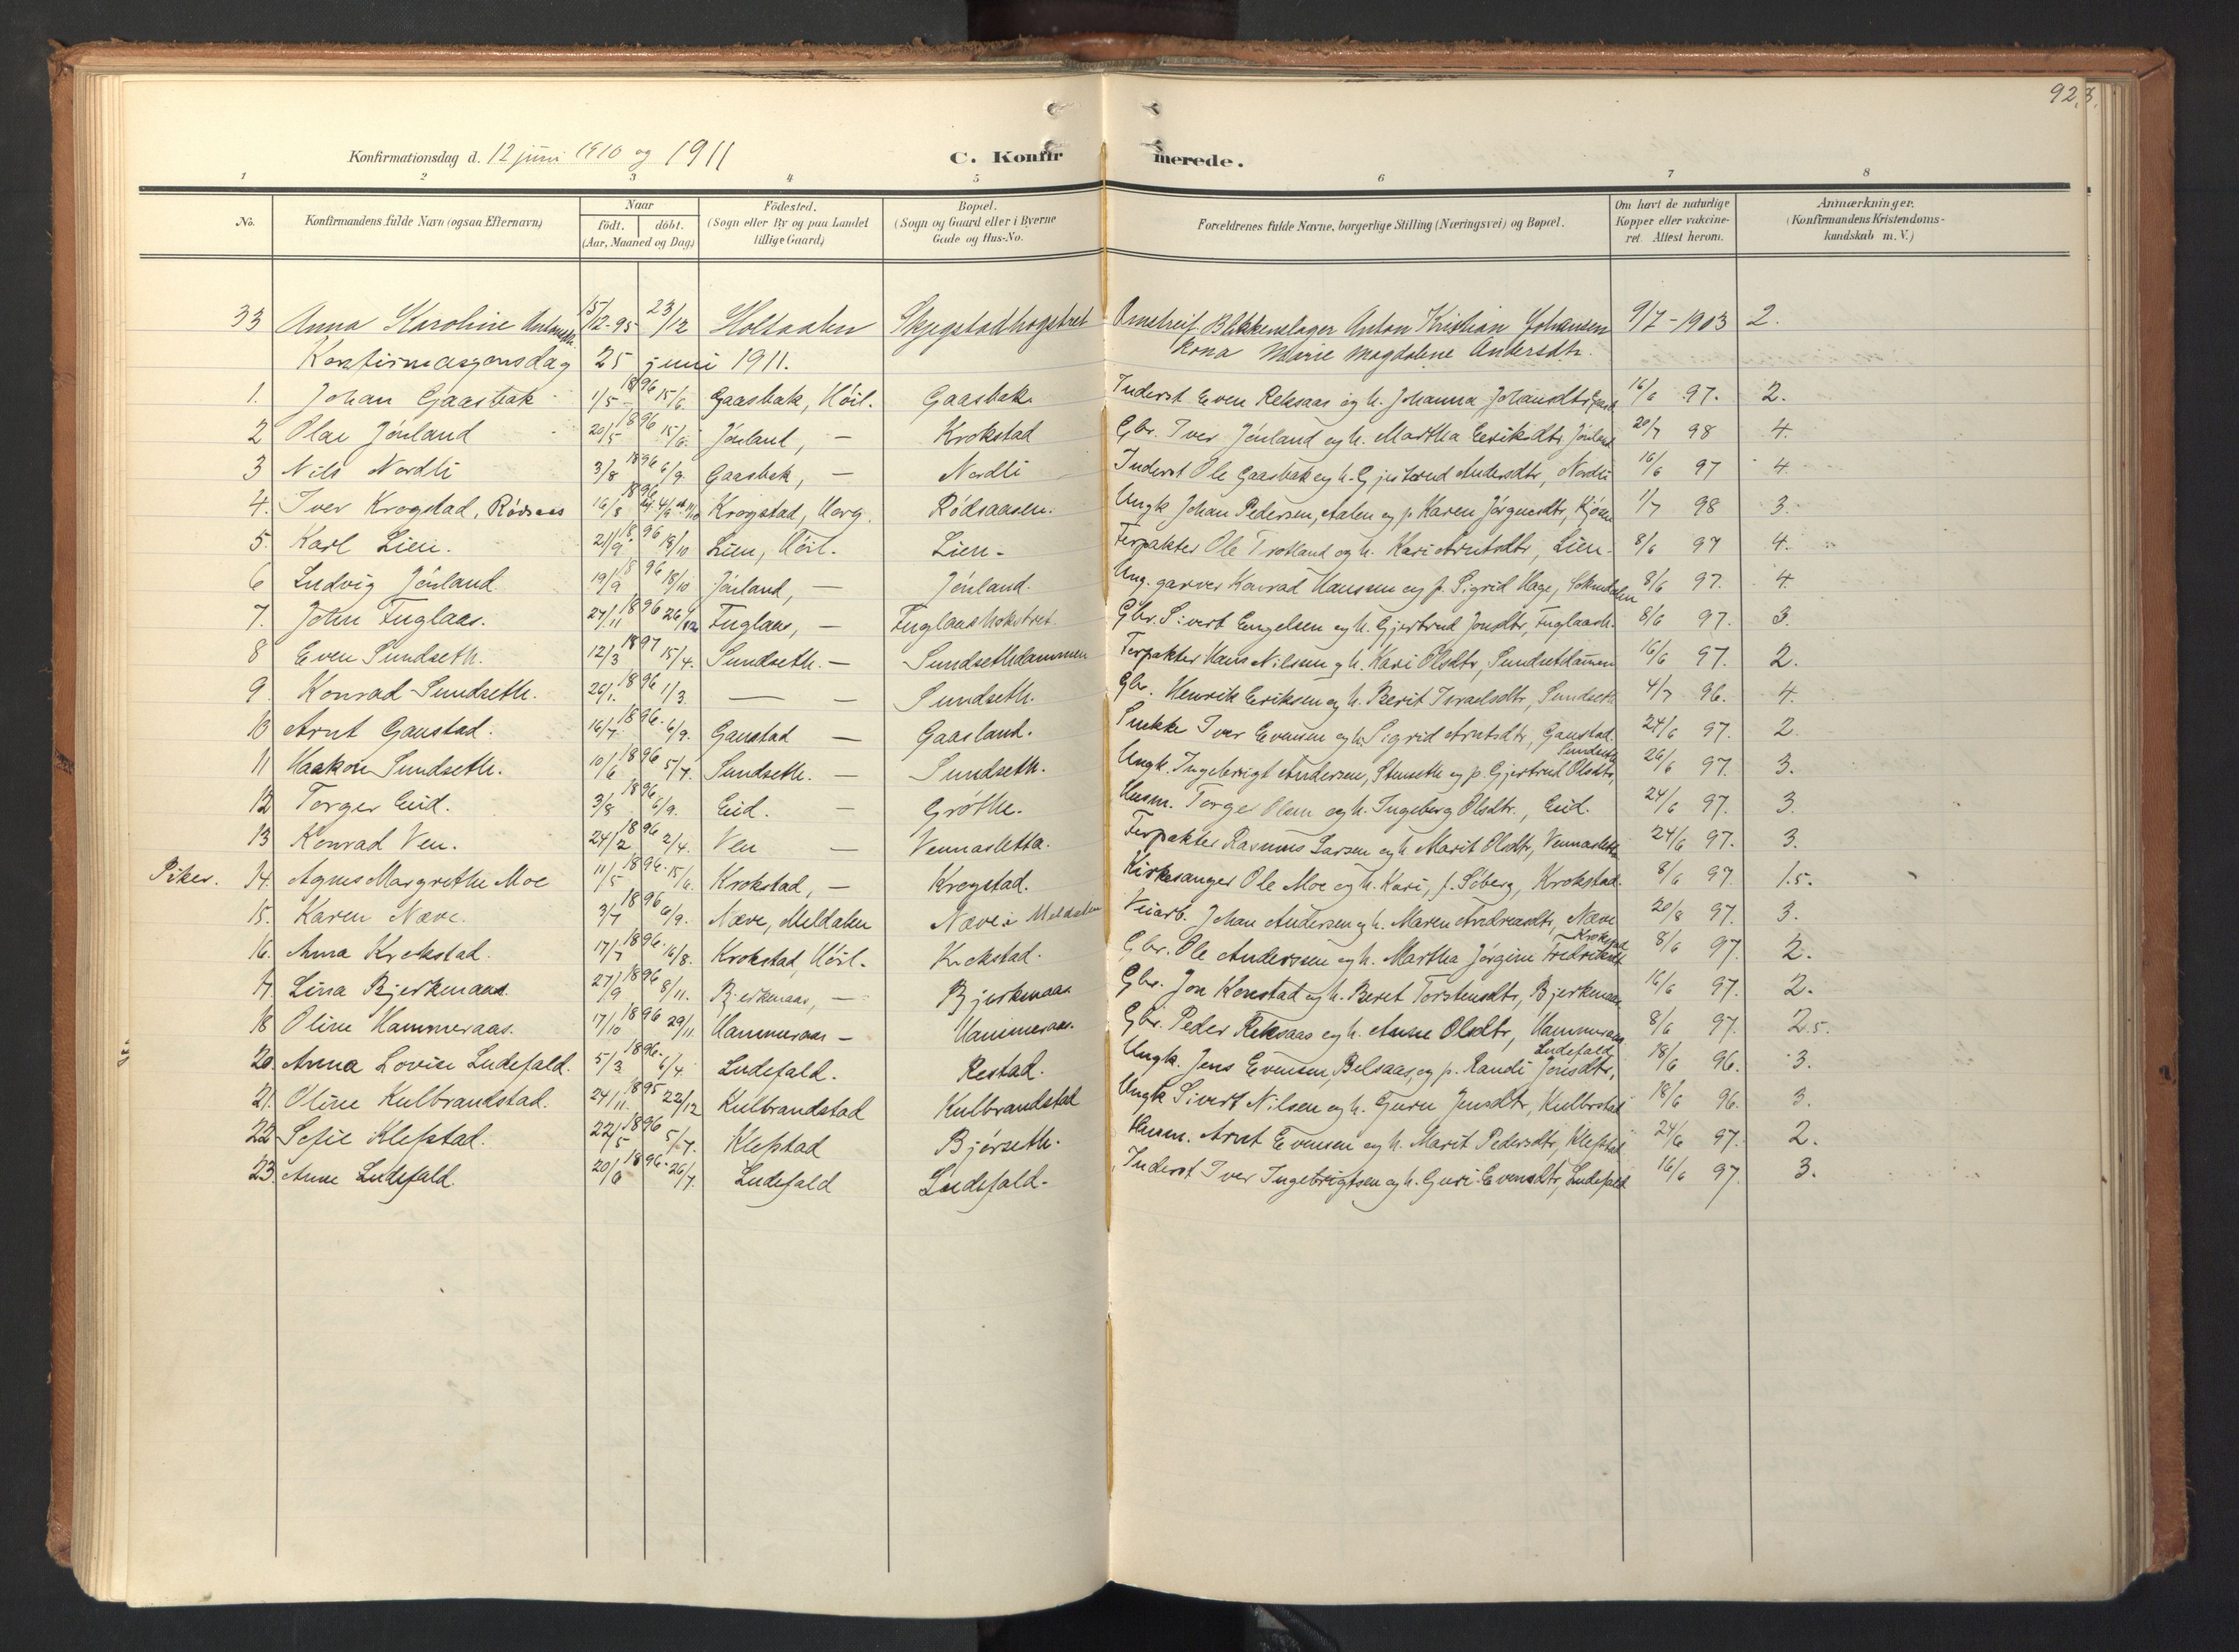 92.
Konfirmationsdag d. 12 juni 1910 og 1911
C. Konfirmerede.
1 2 3 4 5 6 7 8
No. Konfirmandens fulde Navn (ogsaa Efternavn) Naar født. døbt. (Aar, Maaned og Dag) Fødested. (Sogn eller By og paa Landet tillige Gaard) Bopæl. (Sogn og Gaard eller i Byerne Gade og Hus-No. Forældrenes fulde Navne, borgerlige Stilling (Næringsvei) og Bopæl. Om havt de naturlige Kopper eller vakcineret. Attest herom. Anmærkninger. (Konfirmandens Kristendomskundskab m. V.)
33 Anna Karoline 15/12-95 23/12 Holtaalen Omstreif. Blikkenslager Anton Kristian Johansen 9/7-1903 2.
Kona Marie Magdalene Andersdtr.
Konfirmasjonsdag 25 juni 1911.
1. Johan Gaasbak 1/5 1896 15/6 Gaasbak, Høil. Gaasbak. Inderst Even Reksaas og h. Johanna Johansdtr 16/6 97. 2.
2 Olai Jønland 20/5 1896 15/6 Jønland, — Krokstad Gbr. Iver Jønland og h. Martha Eriksdtr. Jønland 20/7 98 4.
3 Nils Nordli 3/8 1896 6/9. Gaasbak, — Nordli Inderst Ole Gaasbak og h. Gjertrud Andersdtr, Nordli 16/6 97 4
4. Iver Krogstad, Rødsaas 16/8 1896 Krogstad, Horg. Rødsaasen. Ungk Johan Pedersen, Aalen og p. Karen Jørgensdtr, 1/7 98 3.
5. Karl Lien. 21/9 1896 18/10 Lien, Høil. Lien. Forpakter Ole Trotland og h. Kari Arntsdtr, Lien. 8/6 97 4.
6 Ludvig Jønland 19/9 1896 18/10 Jønland, — Jønland. Ung. garver Konrad Hansen og p. Sigrid Hage, Soknedalen 8/6 97. 4
7. John Fuglaas. 27/11 1896 26/12 Fuglaas, — Fuglaas Gbr. Sivert Engelsen og h. Gjertrud Jonsdtr, Fuglaas 8/6 97. 3.
8 Even Sundseth. 12/3 1897 15/4. Sundseth. — Sundsethdammen Forpakter Hans Nilsen og h. Kari Olsdtr, Sundsetdammen 16/6 97. 2.
9. Konrad Sundseth. 26/1. 1896 1/3. — — Sundseth. Gbr. Henrik Eriksen og h. Berit Israelsdtr, Sundseth 4/7 96. 4.
10 Arnt Gaustad. 16/7. 1896. 6/9. Gaustad — Gaasland. Snekke Iver Evensen og h. Sigrid Arntsdtr, Gaustad. 24/6 97. 2.
11 Haakon Sundseth. 10/6 1896 5/7. Sundseth. — Sundseth. Ungk. Ingebrigt Andersen, og p. Gjertrud Olsdtr, Sundseth 26/6 97. 3.
12 Torger Eid. 3/8 1896 6/9. Eid. — Grøthe. Husm. Torger Olsen og h. Ingeborg Olsdtr., Eid. 24/6 97. 3.
13 Konrad Ven. 24/2 1896 2/4. Ven — Vennasletta. Forpakter Rasmus Larsen og h Marit Olsdtr, Vennasletta 24/6 97. 3.
Piker. 14. Agnes Margrethe Moe 11/5 1896. 15/6. Krokstad, — Krogstad. Kirkesanger Ole Moe og h. Kari, f. Søberg, Krokstad. 8/6 97. 1.5.
15. Karen Næve. 3/7 1896 6/9. Næve, Meldalen Næve i Meldalen Veiarb. Johan Andersen og h. Maren Andreasdtr, Næve 20/8 97. 3.
16. Anna Krokstad. 17/7 1896. 16/8. Krokstad, Høil. Krokstad. Gbr. Ole Andersen og h. Martha Jørgine Fredriksdtr Krokstad 8/6 97. 2.
17. Lina Bjerkenaas. 27/9 1896 8/11. Bjerkenaas, — Bjerkenaas Gbr. Jon Kornstad og h. Beret Torstensdtr, Bjerkenaas 16/6 97. 2.
18 Oline Hammeraas. 17/10 1896 29/11 Hammeraas — Hammeraas. Gbr. Peder Reksaas og h. Anne Olsdtr, Hammeraas 8/6 97. 2.5.
20. Anna Lovise Ludefald. 5/3 1896. 6/4. Ludefald. Restad. Ungk. Jens Evensen, Belsaas, og p. Randi Jonsdtr, Ludefald 18/6 96. 3.
21. Oline Kulbrandstad. 24/11. 1895 22/12 Kulbrandstad Kulbrandstad Ungk Sivert Nilsen og h. Guru Jensdtr, Kulbrstad 18/6 96. 3.
22 Sefie Klefstad. 22/5 1896 5/7. Klefstad Bjørseth. Husm. Arnt Evensen og h. Marit Pedersdtr, Klefstad 24/6 97. 2.
23. Anne Ludefald. 20/6 1896. 26/7. Ludefald Ludefald. Inderst Iver Ingebrigtsen og h. Guri Evensdtr, Ludefald 16/6 97. 3.